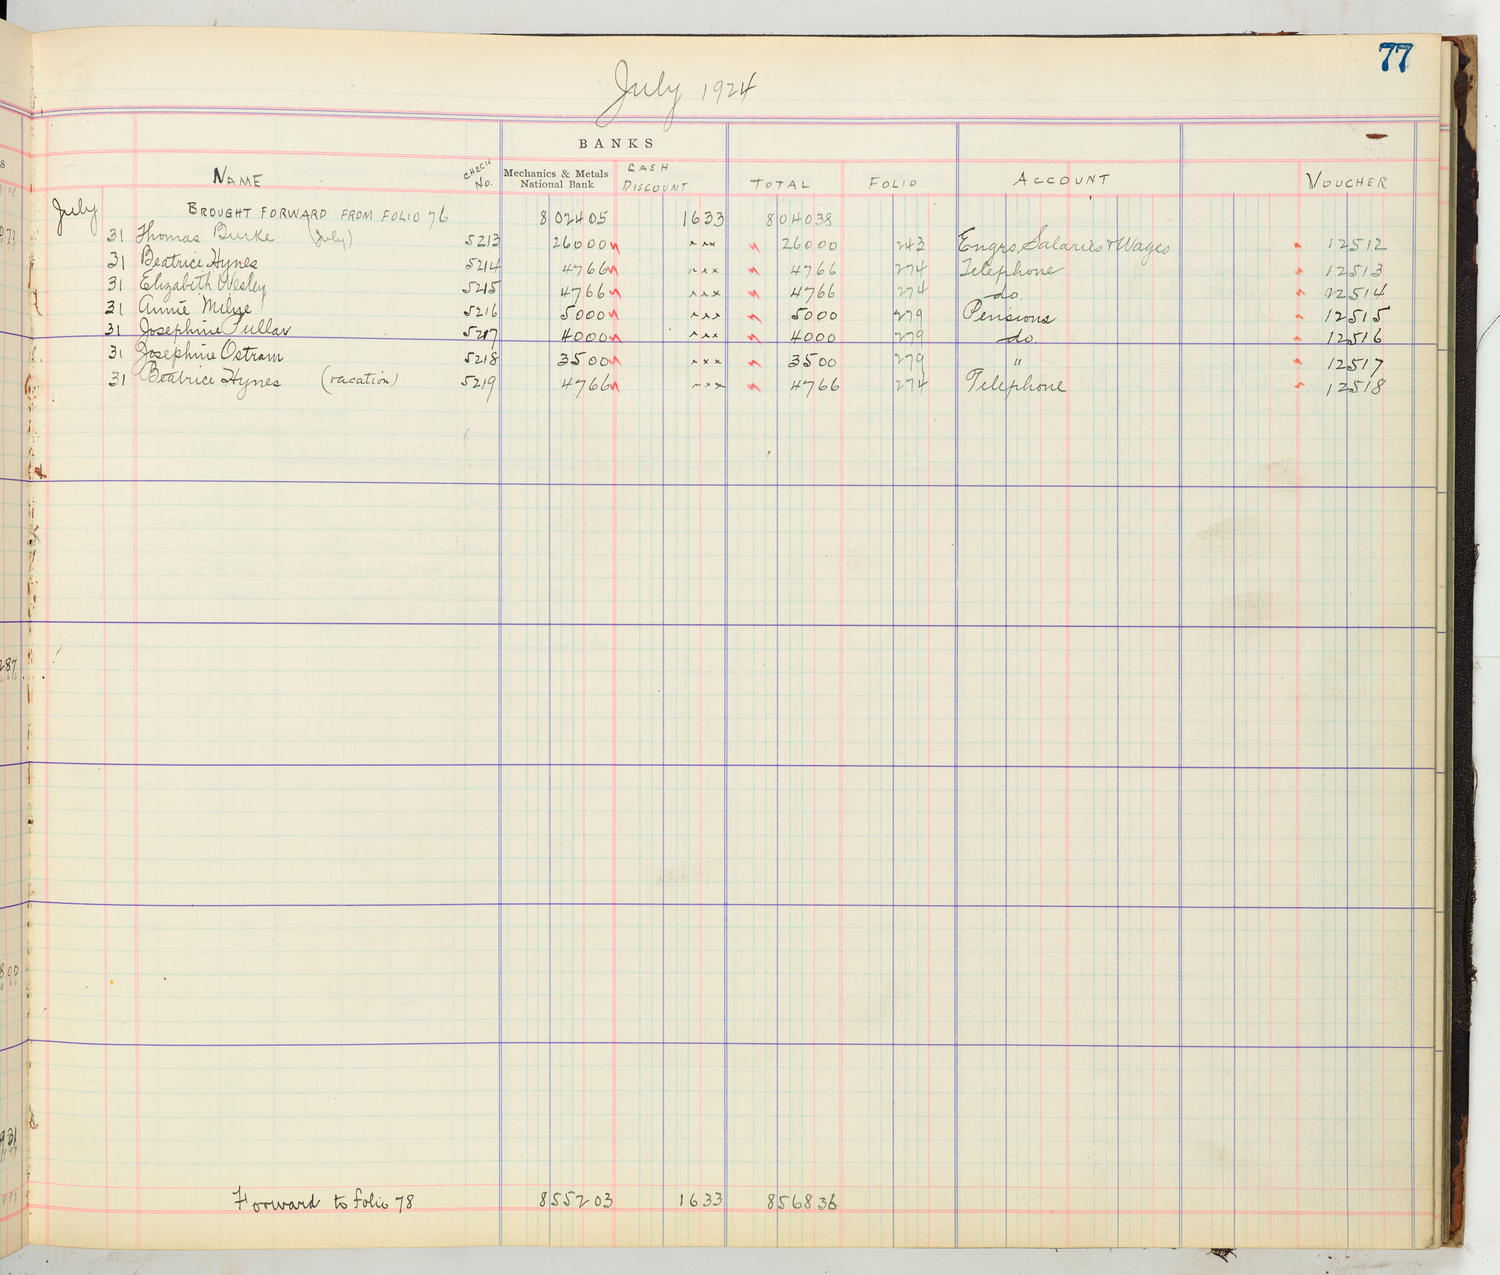 77
July 1924
BANKS
NAME CHECK No. Mechanics & Metals National Bank CASH DISCOUNT TOTAL FOLIO ACCOUNT VOUCHER
July BROUGHT FORWARD FROM FOLIO 76 802405 1633 804038
31 Thomas Burke (July) 5213 26000 xxx 26000 243 Engrs Salaries & Wages 12512
31 Beatrice Hynes 5214 4766 xxx 4766 274 Telephone 12513
31 Elizabeth Wesley 5215 4766 xxx 4766 274 do. 12514
31 Annie Milne 5216 5000 xxx 5000 279 Pensions 12515
31 Josephine Fullar 5217 4000 xxx 4000 279 do 12516
31 Josephine Ostrom 5218 3500 xxx 3500 279 " 12517
31 Beatrice Hynes (vacation) 5219 4766 xxx 4766 274 Telephone 12518
Forward to folio 78 855203 1633 856836